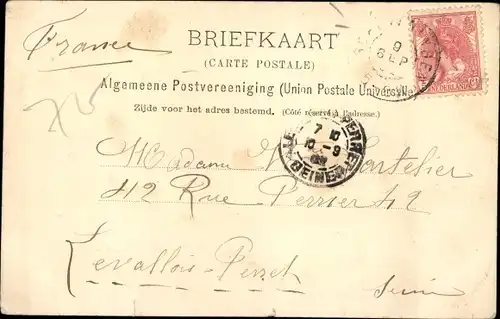 France
BRIEFKAART
(CARTE POSTALE)
Algemeene Postvereeniging (Union Postale Universelle)
Zijde voor het adres bestemd. (Côté réservé à l'adresse.)
9
SEP
NEDERLAND
7 10
10 - 9
SEINE
Madame
42 Rue Perrier 42
Levallois-Perret
Seine